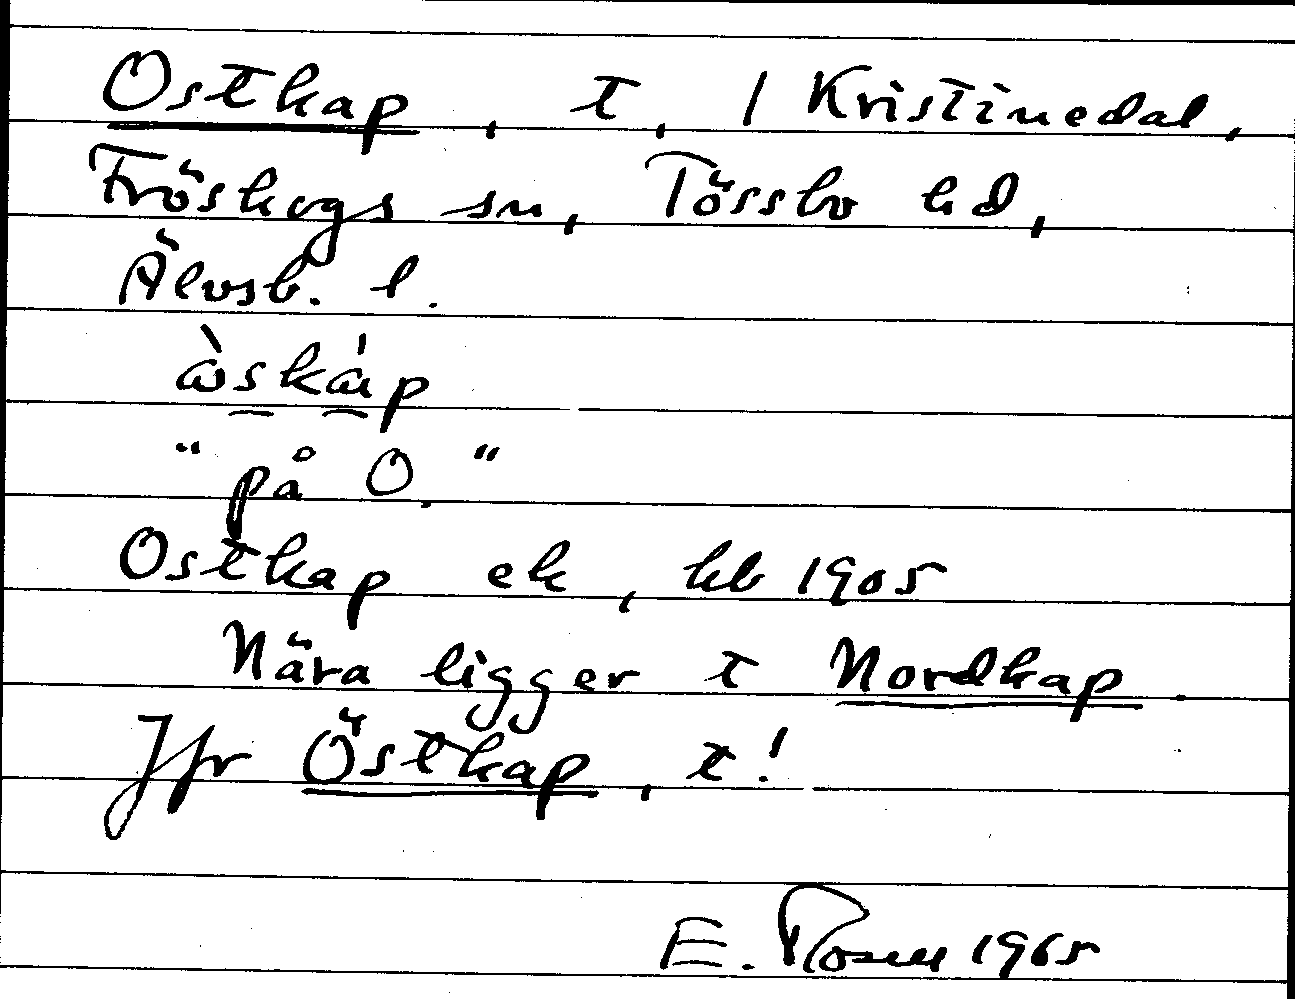 Ostkap, t, / Kristinedal,
Fröskogs sn, Tössbo hd,
Älvsb. l.
àskáp
"på O."
Ostkap ek, kb 1905
Nära ligger t Nordkap.
Jfr Östkap, t!
E. Rosell 1965